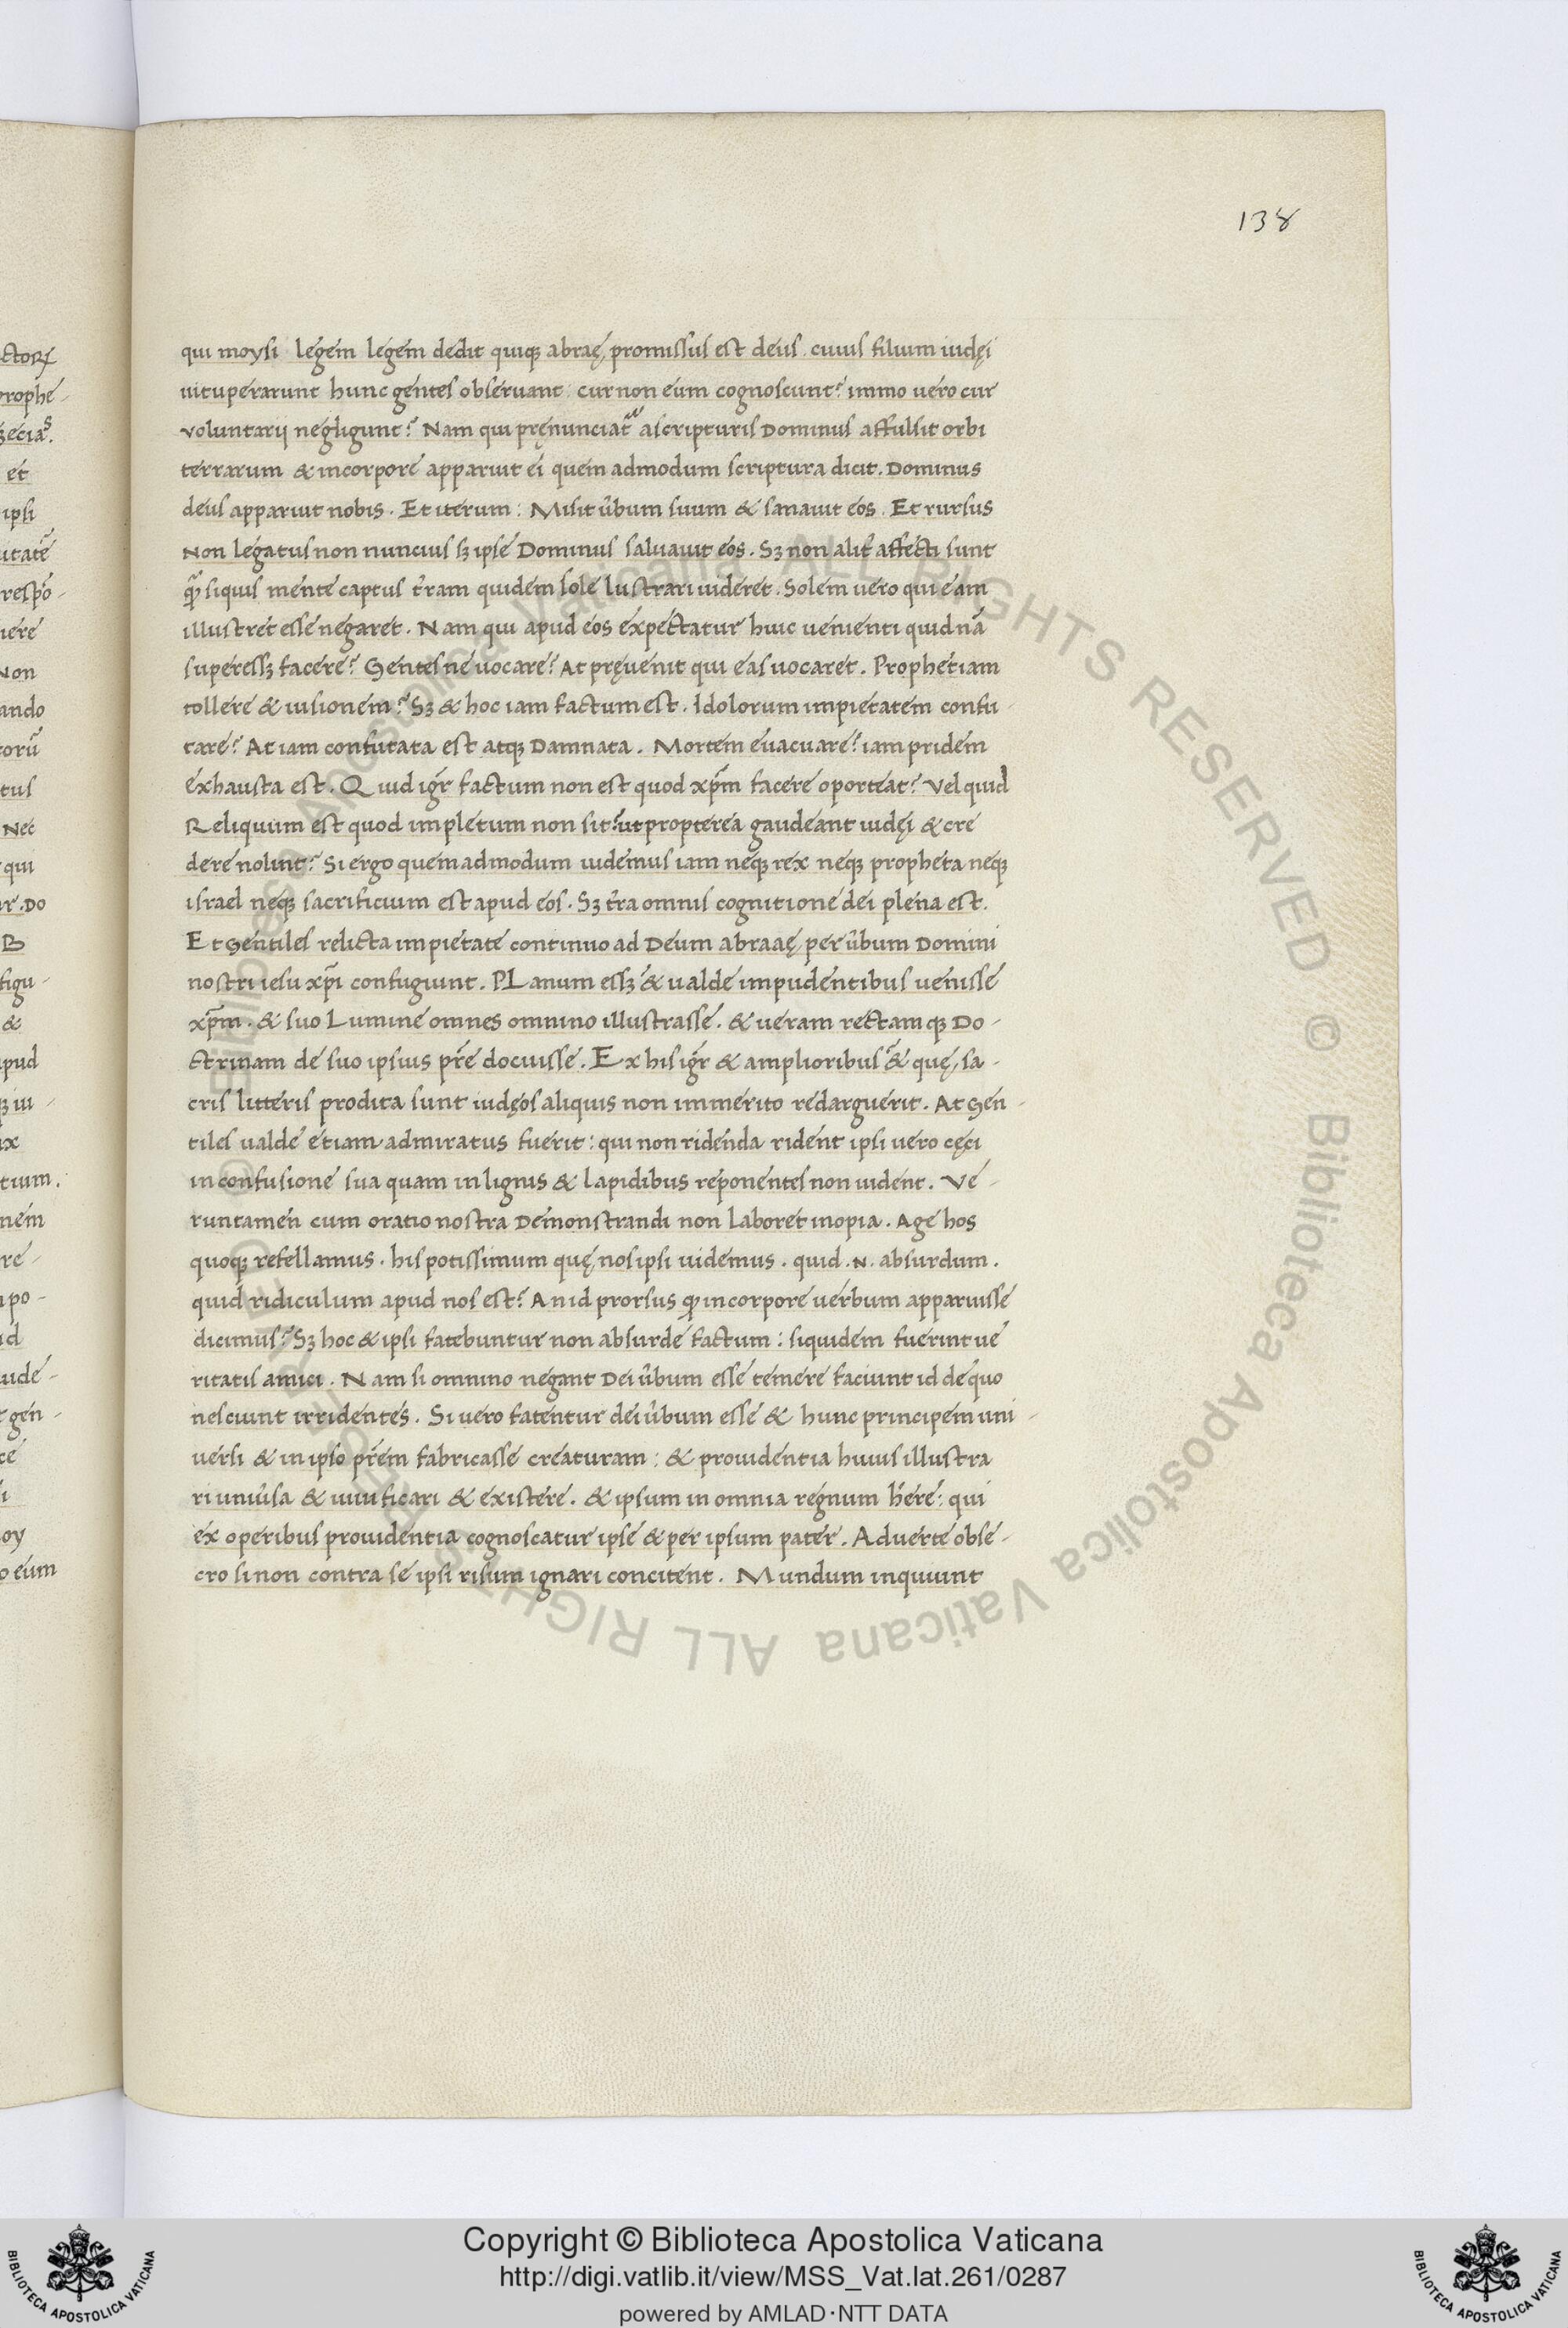 138
qui moysi legem legem dedit quiqꝫ abraę, promissus est deus cuius filium iudęi
uituperarunt hunc gentes obseruant cur non eum cognoscunt? immo uero cur
voluntarij negligunt? Nam qui pręnunciat᷑ a scripturis Dominus affulsit orbi
terrarum & in corpore apparuit ei quem admodum scriptura dicit. Dominus
deus apparuit nobis. Et iterum: Misit ûbum suum & sanauit eos. Et rursus
Non legatus non nuncius sꝫ ipse Dominus saluauit eos. Sꝫ non alit᷑ affecti sunt
ꝙ̃ siquis mente captus t̃ram quidem sole lustrari uideret. Solem uero qui eam
illustret esse negaret. Nam qui apud eos expectatur huic uenienti quid nã
superessꝫ facere? Gentes ne uocare? At pręuenit qui eas uocaret. Prophetiam
tollere & uisionem? Sꝫ & hoc iam factum est. Idolorum impietatem confu-
tare? At iam confutata est atqꝫ Damnata. Mortem euacuare? iam pridem
exhausta est. Quid igr̃ factum non est quod xp̃m facere oporteat? Vel quid
Reliquum est quod impletum non sit? ut propterea gaudeant iudęi & cre
dere nolint? Si ergo quemadmodum uidemus iam neqꝫ rex neqꝫ propheta neqꝫ
israel neqꝫ sacrificium est apud eos. Sꝫ t̃ra omnis cognitione dei plena est.
Et Gentiles relicta impietate continuo ad Deum abraaę, per ûbum Domini
nostri iesu xp̃i confugiunt. PLanum essꝫ & ualde impudentibus uenisse
xp̃m. & suo Lumine omnes omnino illustrasse. & ueram rectam qꝫ Do-
ctrinam de suo ipsius pr̃e docuisse. Ex his igr̃ & amplioribus & quę, sa-
cris litteris prodita sunt iudęos aliquis non immerito redarguerit. At Gen-
tiles ualde etiam admiratus fuerit: qui non ridenda rident ipsi uero cęci
in confusione sua quam in lignis & lapidibus reponentes non uident. Ve-
runtamen cum oratio nostra Demonstrandi non laboret inopia. Age hos
quoqꝫ refellamus. his potissimum quę, nos ipsi uidemus. quid .N. absurdum.
quid ridiculum apud nos est? An id prorsus ꝙ in corpore uerbum apparuisse
dicimus? Sꝫ hoc & ipsi fatebuntur non absurde factum: siquidem fuerint ue
ritatis amici. Nam si omnino negant Dei ûbum esse temere faciunt id de quo
nesciunt irridentes. Si uero fatentur dei ûbum esse & hunc principem uni-
uersi & in ipso pr̃em fabricasse creaturam: & prouidentia huius illustra
ri uniûsa & uiuificari & existere. & ipsum in omnia regnum h̃ere: qui
ex operibus prouidentia cognoscatur ipse & per ipsum pater. Aduerte obse-
cro si non contra se ipsi risum ignari concitent. Mundum inquiunt
Copyright © Biblioteca Apostolica Vaticana
http://digi.vatlib.it/view/MSS_Vat.lat.261/0287
powered by AMLAD·NTT DATA